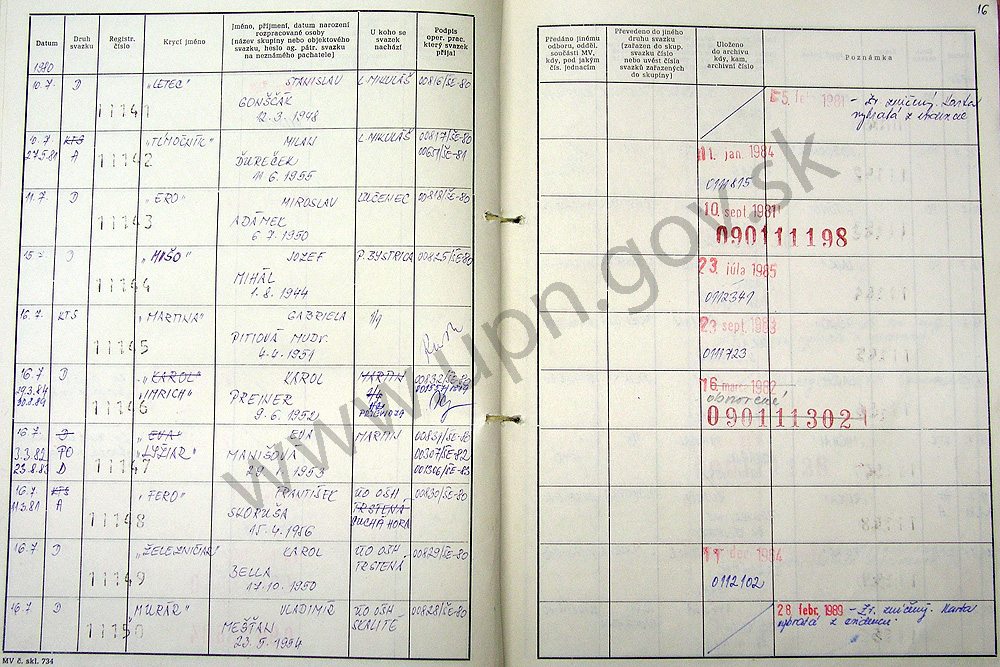 16
Datum
Druh svazku
Registr. číslo
Krycí jméno
Jméno, příjmení, datum narození rozpracované osoby
[název skupiny nebo objektového svazku, heslo ag. pátr. svazku na neznámého pachatele]
U koho se svazek nachází
Podpis oper. prac. který svazek přijal
Předáno jinému odboru, odděl. součásti MV, kdy, pod jakým čís. jednacím
Převedeno do jiného druhu svazku (zařazen do skup. svazku číslo nebo uvést čísla svazků zařazených do skupiny]
Uloženo do archivu kdy, kam, archivní číslo
Poznámka
1980
10.7. D 11141 "LETEC" STANISLAV L. MIKULÁŠ 00816/ŠE-80
GONŠČÁK
12.3.1948
5. 1981 - Zv. zničený. Karta
vybratá z evidencie
10.7. KTS 11142 "TLMOČNÍK" MILAN L. MIKULÁŠ 00817/ŠE-80
27.5.81 A ĎUREČEK 00651/ŠE-81
11.6.1955
11. jan. 1984
11.7. D 11143 "ERO" MIROSLAV LUČENEC 00818/ŠE-80
ADÁMEK
6.7.1950
10. sept. 1981
090111198
D 11144 "MIŠO" JOZEF P. BYSTRICA 00825/ŠE-80
MIHÁL
1.8.1944
23. júla 1985
0112341
16.7. KTS 11145 "MARTINA" GABRIELA
PITIOVÁ MUDr.
4.4.1951
sept.
0111723
16.7 D 11146 "KAROL" KAROL MARTIN 00832/ŠE-80
"IMRICH" PREINER
9.6.1952
16. marc. 1982
obnovené
090111302
16.7. D 11147 "EVA" EVA MARTIN 00831/ŠE-80
3.3.82 PO "LYŽIAR" MANIŠOVÁ 00307/ŠE-82
23.8.83 D 1953 001306/ŠE-83
16.7 KTS 11148 "FERO" FRANTIŠEK ÚO OŠH, 00830/ŠE-80
11.3.81 A SKORUŠA TRSTENÁ
15.4.1956 SUCHÁ HORA
16.7 D 11149 "ŽELEZNIČIAR" KAROL ÚO OŠH, 00829/ŠE-80
BELLA TRSTENÁ
17.10.1950
11 dec. 1984
0112102
16.7 D 11150 "MURÁR" VLADIMÍR ÚO OŠH 00828/ŠE-80
MEŠŤAN SKALITÉ
23.5.1954
28. febr. 1989 - Zv. zničený. Karta
vybratá z evidencie.
MV č. skl. 734
www.upn.gov.sk